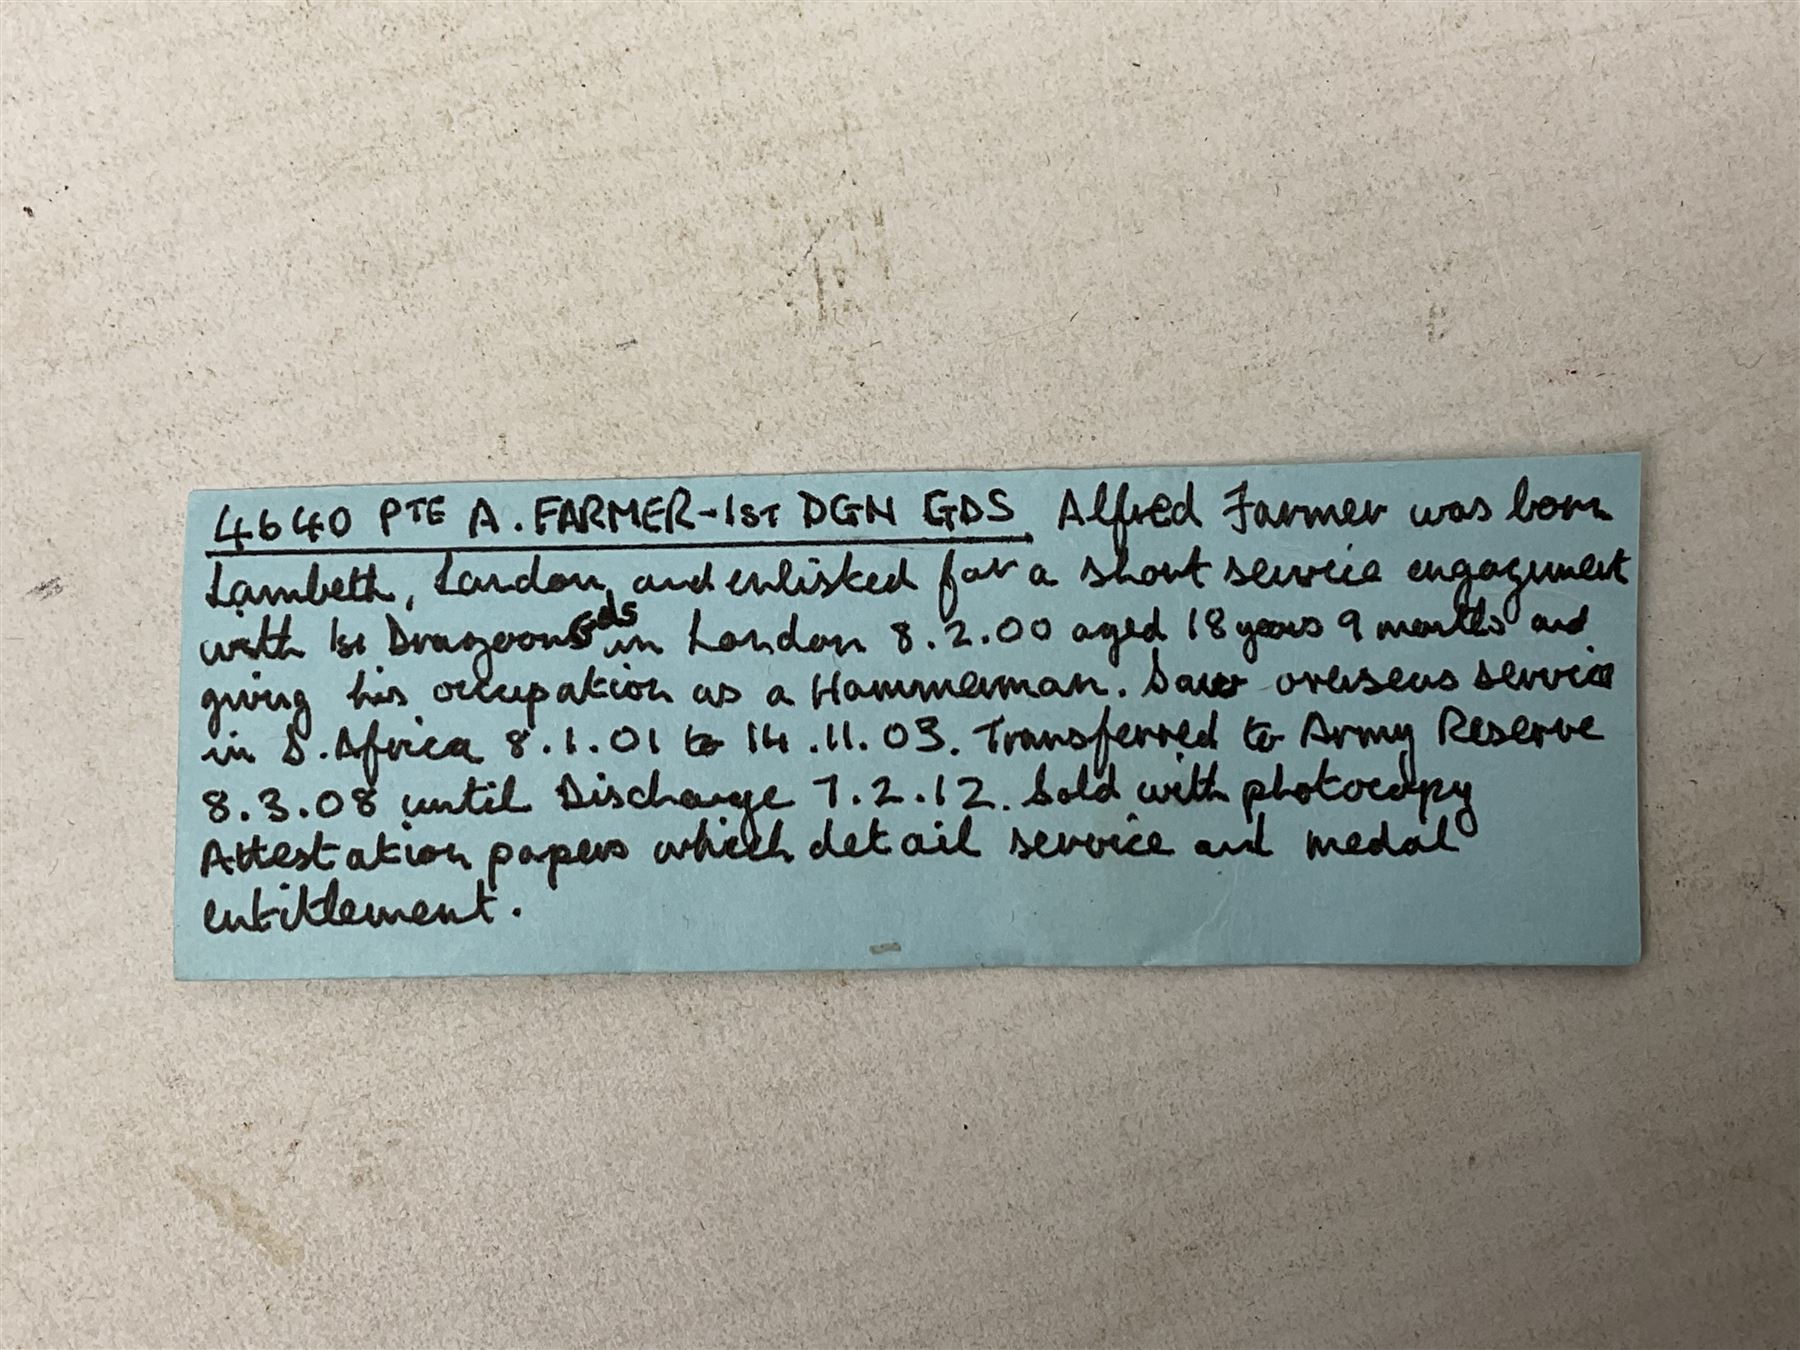 4640 PTE A. FARMER-1ST DGN GDS Alfred Farmer was born
Lambeth, London, and enlisted for a short service engagement
with 1st Dragoon Gds in London 8.2.00 aged 18 years 9 months and
giving his occupation as a Hammerman. Saw overseas service
in S. Africa 8.1.01 to 14.11.03. Transferred to Army Reserve
8.3.08 until Discharge 7.2.12. Sold with photocopy
Attestation papers which detail service and medal
entitlement.